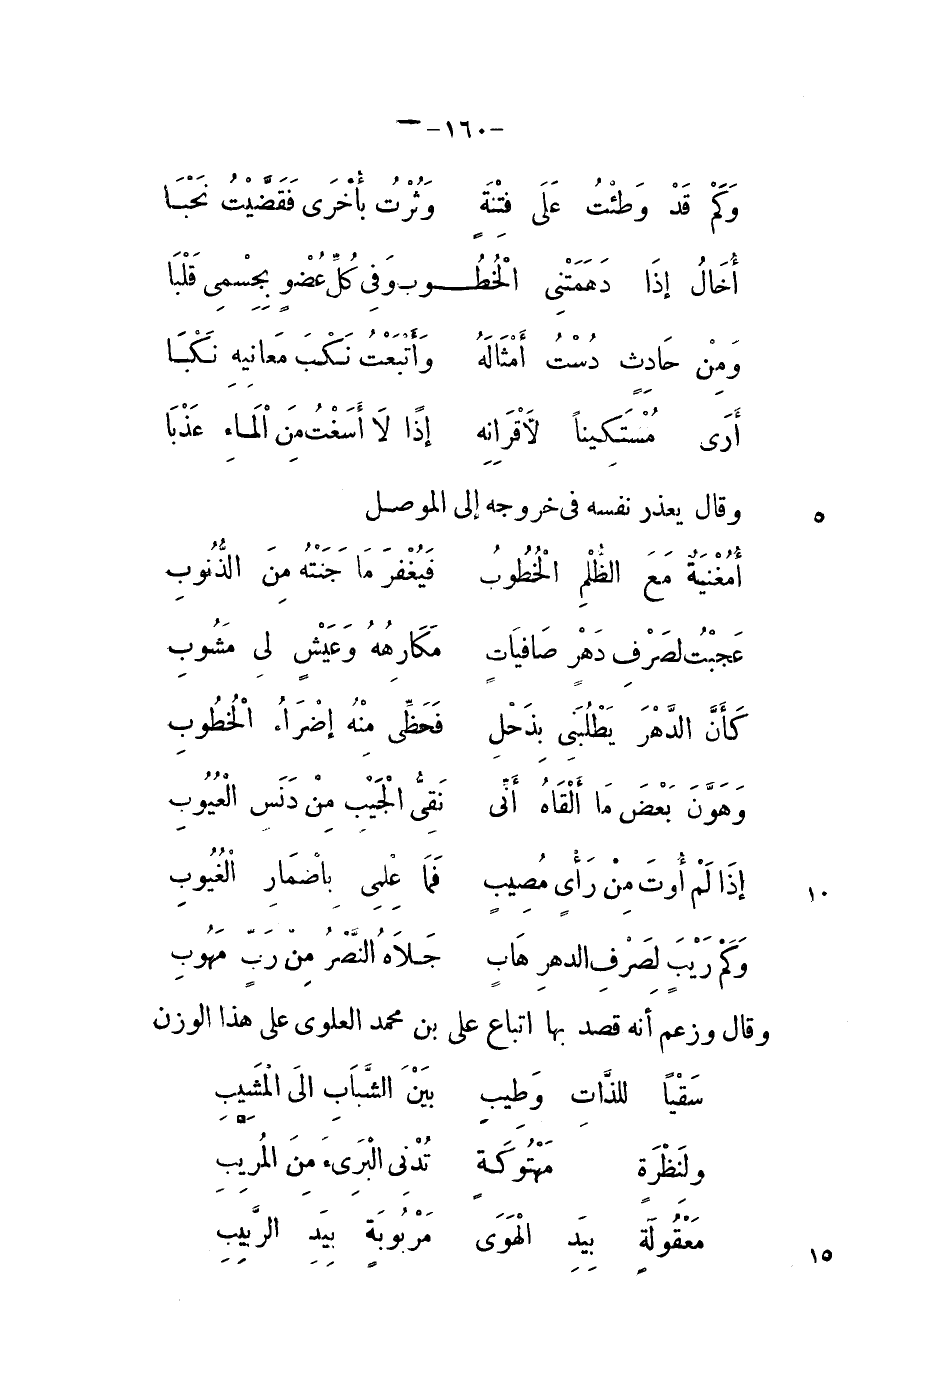 -١٦٠-
وَكَمْ قَدْ وَطِئْتُ عَلَى فِتْنَةٍ وَثُرْتُ بِأُخْرَى فَقَضَّيْتُ نَحْبَا
أُخَالُ إِذَا دَهَمَتْنِى الْخُطُوب وَفِى كُلِّ عُضْوٍ بِجِسْمِى قَلْبَا
وَمِنْ حَادِثٍ دُسْتُ أَمْثَالَهُ وَأَتْبَعْتُ نَكْبَ مَعَانِيهِ نَكْبَا
أَرَى مُسْتَكِيناً لِأَقْرَانِهِ إِذًا لَا أَسَغْتُ مِنَ الْمَاءِ عَذْبَا
٥ وقال يعذر نفسه فى خروجه إلى الموصل
أَمُغْنِيَةٌ مَعَ الظُّلْمِ الْخُطُوبُ فَيُغْفَرَ مَا جَنَتْهُ مِنَ الذُّنُوبِ
عَجِبْتُ لِصَرْفِ دَهْرٍ صَافِيَاتٍ مَكَارِهُهُ وَعَيْشٍ لِى مَشُوبِ
كَأَنَّ الدَّهْرَ يَطْلُبُنِى بِذَحْلٍ فَحَظِّى مِنْهُ إِضْرَاءُ الْخُطُوبِ
وَهَوَّنَ بَعْضَ مَا أَلْقَاهُ أَنِّى نَقِىُّ الْجَيْبِ مِنْ دَنَسِ الْعُيُوبِ
١٠ إِذَا لَمْ أُوتَ مِنْ رَأْىٍ مُصِيبٍ فَمَا عِلْمِى بِاضْمَارِ الْغُيُوبِ
وَكَمْ رَيْبٍ لِصَرْفِ الدهرِ هَابٍ جَلَاهُ النَّصْرُ مِنْ رَبٍّ مَهُوبِ
وقال وزعم أنه قصد بها اتباع على بن محمد العلوى على هذا الوزن
سَقْياً لِلذَّاتِ وَطِيبٍ بَيْنَ الشَّبَابِ الَى الْمَشِيبِ
ولَنِظْرَةٍ مَهْتُوكَةٍ تُدْنِى الْبَرِىءَ مِنَ الْمُرِيبِ
١٥ مَعْقُولَةٍ بِيَدِ الْهَوَى مَرْبُوبَةٍ بِيَدِ الرَّبِيبِ